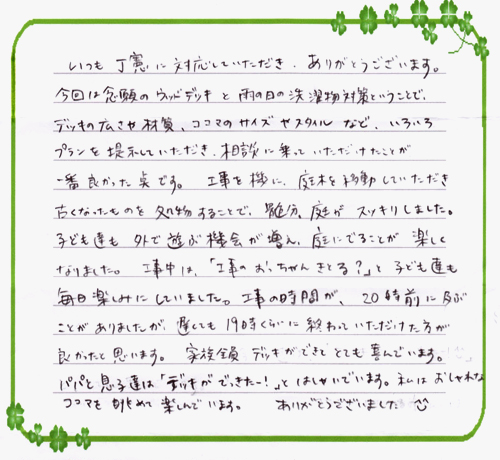 いつも丁寧に対応していただき、ありがとうございます。
今回は念願のウッドデッキと雨の日の洗濯物対策ということで、
デッキの広さや材質、ココマのサイズやスタイルなど、いろいろ
プランを提示していただき、相談に乗っていただけたことが
一番良かった点です。 工事を機に、庭木を移動していただき
古くなったものを処分することで、随分、庭がスッキリしました。
子ども達も外で遊ぶ機会が増え、庭にでることが楽しく
なりました。 工事中は、「工事のおっちゃんきとる?」と子ども達も
毎日楽しみにしていました。工事の時間が、20時前に及ぶ
ことがありましたが、遅くても19時くらいに終わっていただけた方が
良かったと思います。 家族全員デッキができてとても喜んでいます。
パパと息子達は「デッキができったー!」とはしゃいでいます。私はおしゃれな
ココマを眺めて楽しんでいます。 ありがとうございました